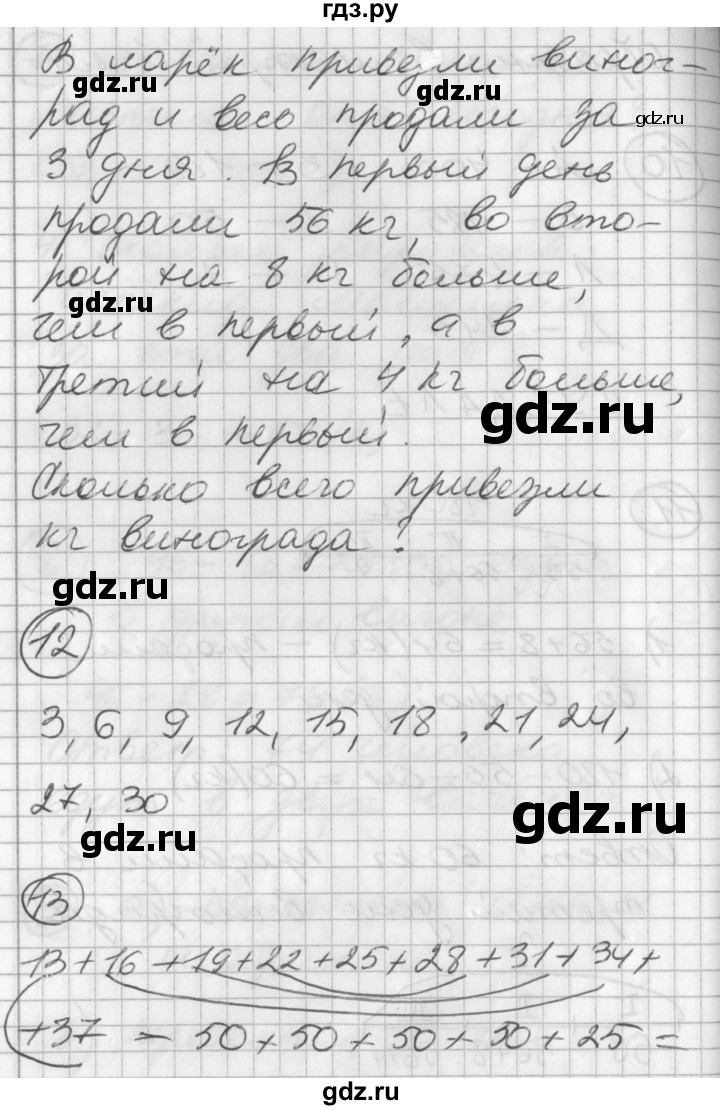 гдз.ру
В ларёк привезли виног-
рад и весь продали за
3 дня. В первый день
продали 56 кг, во вто-
рой на 8 кг больше,
чем в первый, а в
третий на 4 кг больше,
чем в первый.
Сколько всего привезли
кг винограда?
12
3, 6, 9, 12, 15, 18, 21, 24,
27, 30
13
13+16+19+22+25+28+31+34+
+37 = 50+50+50+50+25=
gdz.ru
gdz.ru
gdz.ru
gdz.ru
gdz.ru
gdz.ru
gdz.ru
gdz.ru
gdz.ru
gdz.ru
gdz.ru
gdz.ru